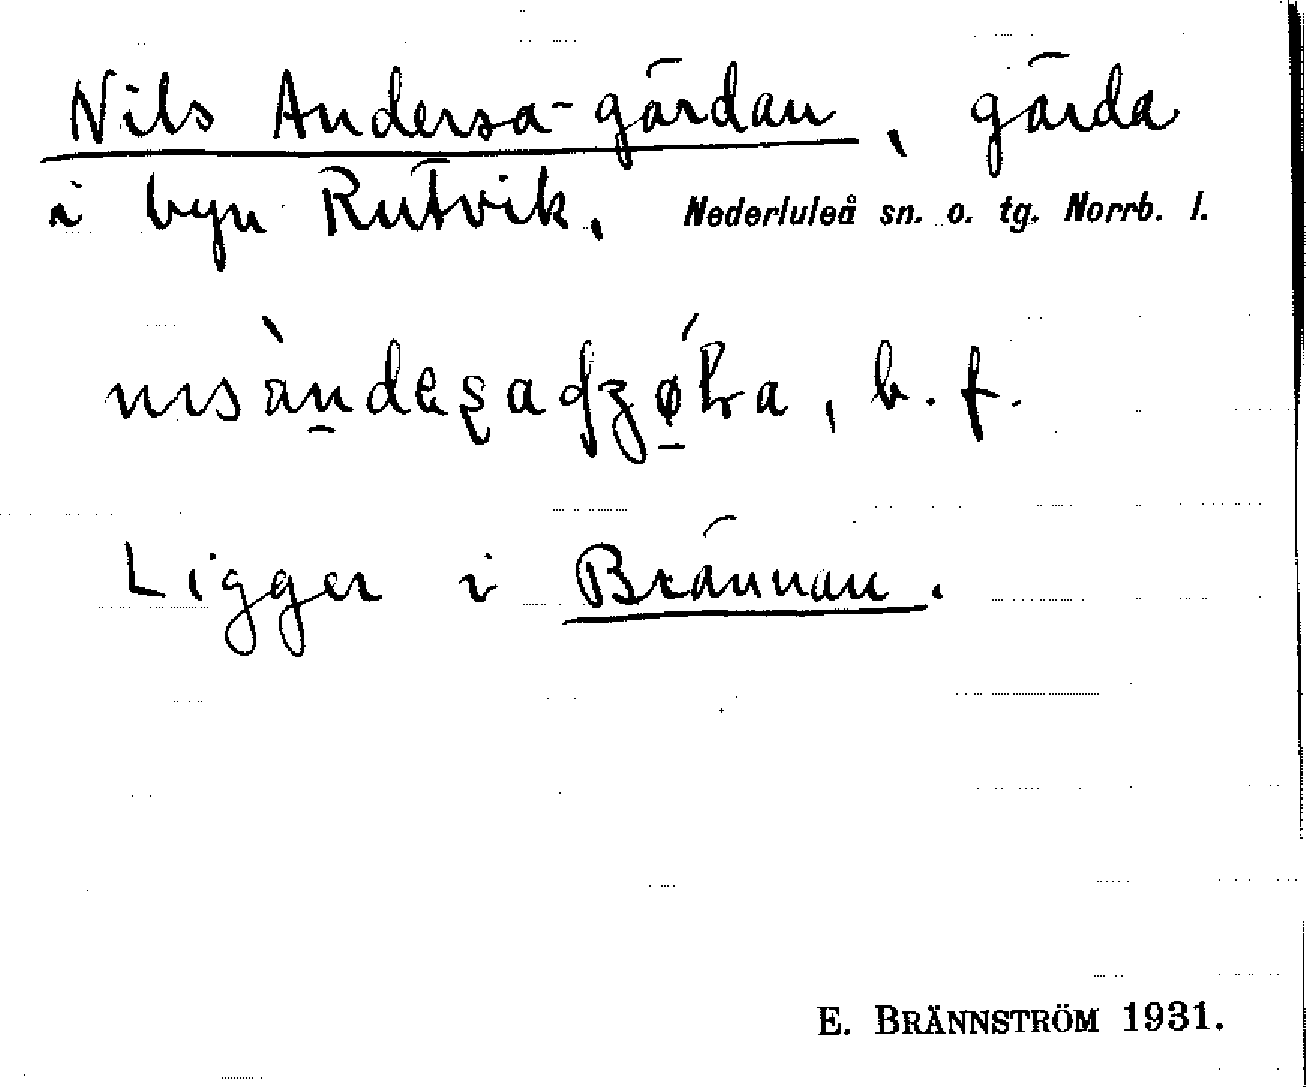 Nils Andersa-gärdan, gärda
i byn Rutvik. Nederluleå sn. o. tg. Norrb. l.
b. f.
Ligger i Brännan.
E. BRÄNNSTRÖM 1931.